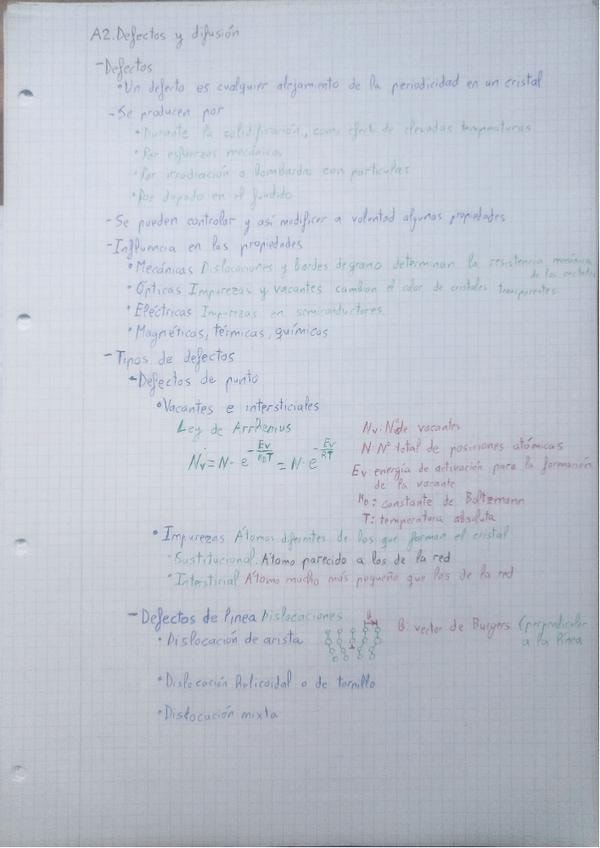 A2. Defectos y difusión
- Defectos
• Un defecto es cualquier alejamiento de la periodicidad en un cristal
- Se producen por
• Durante la solidificación, como efecto de elevadas temperaturas
• Por esfuerzos mecánicos
• Por irradiación o bombardeo con partículas
• Por dopado en el fundido
- Se pueden controlar y así modificar a voluntad algunas propiedades
- Influencia en las propiedades
• Mecánicas Dislocaciones y bordes de grano determinan la resistencia mecánica de los metales
• Ópticas Impurezas y vacantes cambian el color de cristales transparentes
• Eléctricas Impurezas en semiconductores
• Magnéticas, térmicas, químicas
- Tipos de defectos
- Defectos de punto
• Vacantes e intersticiales
Ley de Arrhenius
Nv = N · e^(-Ev/kBT) = N · e^(-Ev/RT)
Nv: Nº de vacantes
N: Nº total de posiciones atómicas
Ev energía de activación para la formación
de la vacante
kB: constante de Boltzmann
T: temperatura absoluta
• Impurezas Átomos diferentes de los que forman el cristal
• Sustitucional Átomo parecido a los de la red
• Intersticial Átomo mucho más pequeño que los de la red
- Defectos de línea Dislocaciones
• Dislocación de arista
B
B: vector de Burgers (perpendicular
a la línea
• Dislocación helicoidal o de tornillo
• Dislocación mixta